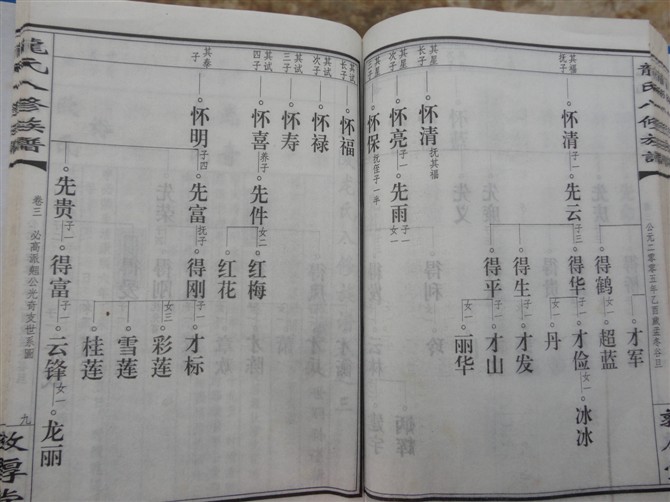 龍氏八修族譜
公元二零零五年乙酉歲孟冬谷旦
其福抚子
怀清 子一
先云 子三
得鹤 子一
才军
超蓝
得华 子一
才俭 女一
冰冰
丹 女一
得生 子一
才发
得平 子一
才山
丽华 女一
其星长子
怀清 抚其福
其星次子
怀亮 子一
先雨 子一 女一
怀保 抚侄子一半
其試长子
怀福
其試次子
怀禄
其試三子
怀寿
其試四子
怀喜 养子一
先件 女二
红梅
红花
其春子
怀明 子四
先富 抚子一
得刚 子一 女三
才标
彩莲
雪莲
桂莲
先贵 子一
得富 子一
云锋 女一
龙丽
龍氏八修族譜
卷三
必高派翹公光奇支世系圖
九
敦厚